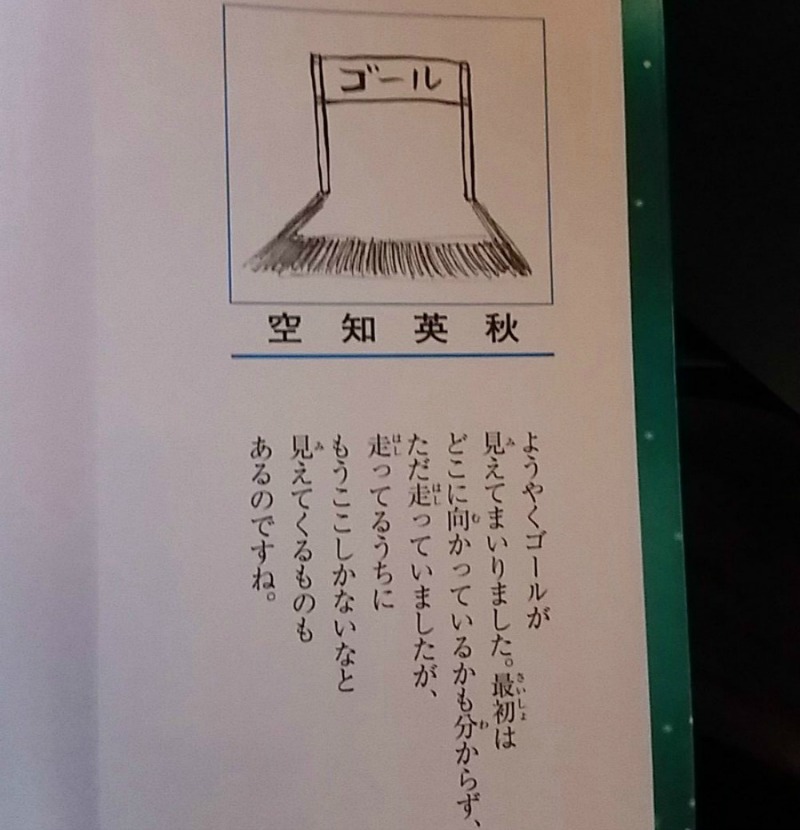 ゴール
空知英秋
ようやくゴールが
見えてまいりました。最初は
どこに向かっているかも分からず、
ただ走っていましたが、
走ってるうちに
もうここしかないなと
見えてくるものも
あるのですね。